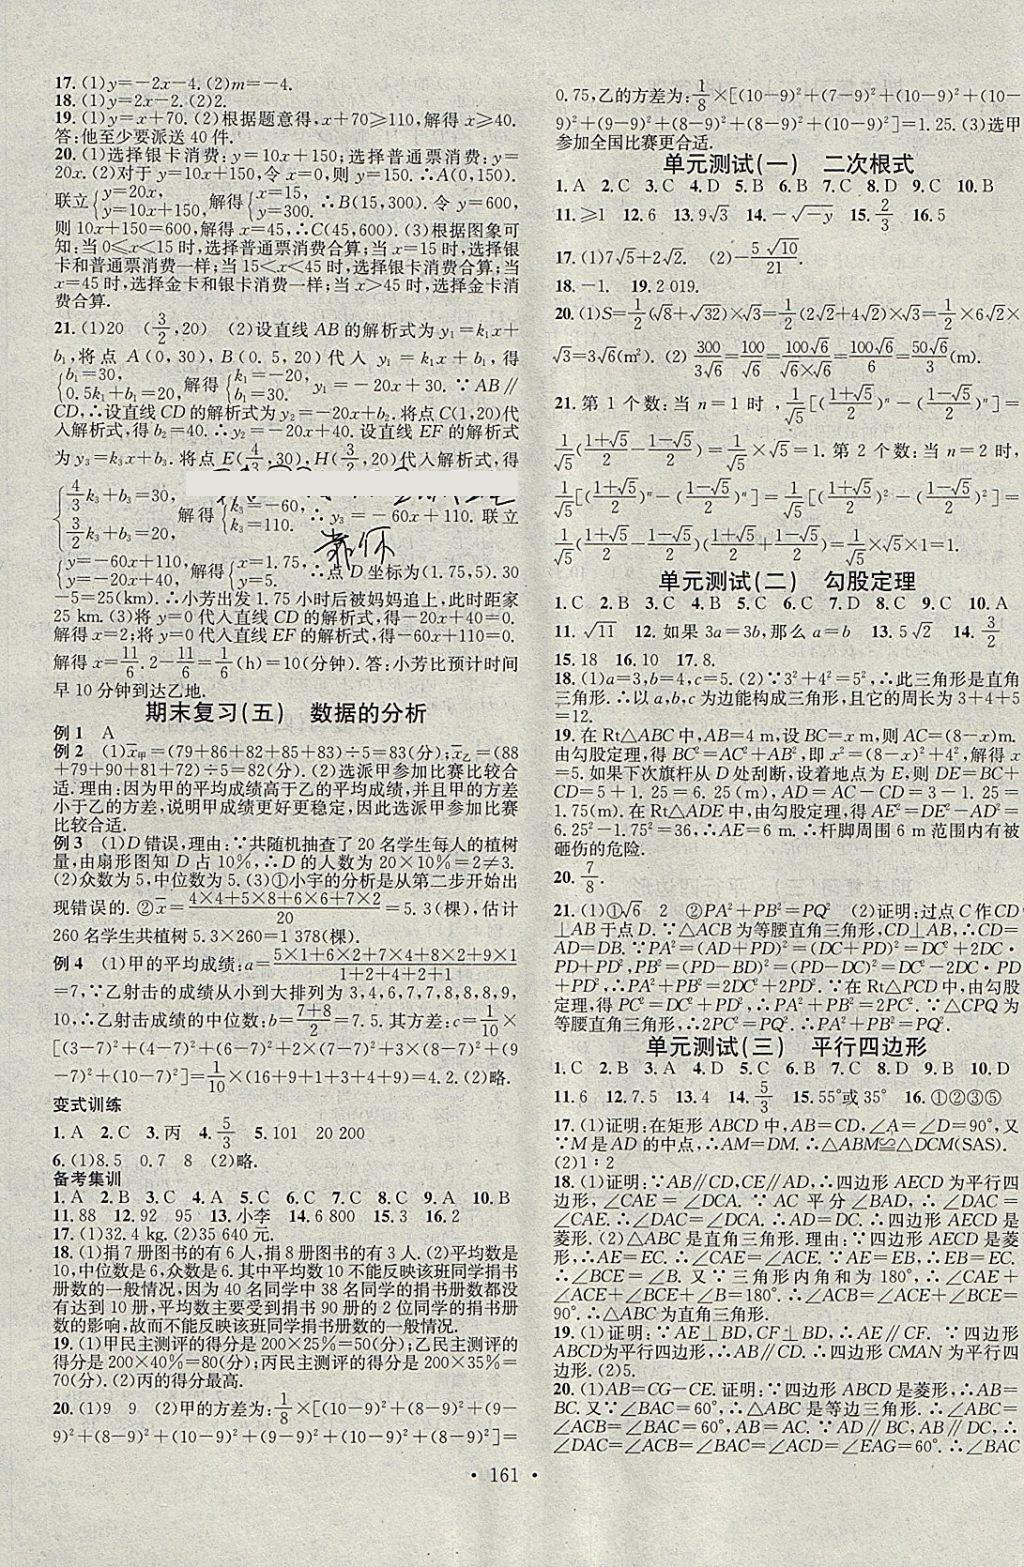 17. (1)y=-2x-4. (2)m=-4.
18. (1)y=2x-2. (2)2.
19. (1)y=x+70. (2)根据题意得, x+70≥110, 解得 x≥40.
答:他至少要派送 40 件.
20. (1)选择银卡消费: y=10x+150; 选择普通票消费: y=
20x. (2)对于 y=10x+150, 令 x=0, 则 y=150. ∴A(0,150).
联立{y=20x, y=10x+150, 解得{x=15, y=300. ∴B(15,300). 令 y=600,
则 10x+150=600, 解得 x=45, ∴C(45,600). (3)根据图象可
知:当 0≤x<15 时,选择普通票消费合算;当 x=15 时,选择银
卡和普通票消费一样;当 15<x<45 时,选择银卡消费合算;当
x=45 时,选择金卡和银卡消费一样;当 x>45 时,选择金卡消
费合算.
21. (1)20 (3/2,20) (2)设直线 AB 的解析式为 y₁=k₁x+
b₁,将点 A(0,30),B(0.5,20)代入 y₁=k₁x+b₁,得
{b₁=30, 0.5k₁+b₁=20, 解得{k₁=-20, b₁=30. y₁=-20x+30. ∵AB∥
CD,∴设直线 CD 的解析式为 y₂=-20x+b₂. 将点 C(1,20)代
入解析式,得 b₂=40. ∴y₂=-20x+40. 设直线 EF 的解析式
为 y₃=k₃x+b₃. 将点 E(4/3,30),H(3/2,20)代入解析式,得
{4/3k₃+b₃=30, 3/2k₃+b₃=20, 解得{k₃=-60, b₃=110. ∴y₃=-60x+110. 联立
{y=-60x+110, y=-20x+40, 解得{x=1.75, y=5. ∴点 D 坐标为(1.75,5). 30
-5=25(km). ∴小芳出发 1.75 小时后被妈妈追上,此时距家
25 km. (3)将 y=0 代入直线 CD 的解析式,得-20x+40=0.
解得 x=2;将 y=0 代入直线 EF 的解析式,得-60x+110=0.
解得 x=11/6. 2-11/6=1/6(h)=10(分钟). 答:小芳比预计时间
早 10 分钟到达乙地.
期末复习(五) 数据的分析
例 1 A
例 2 (1)x̄甲=(79+86+82+85+83)÷5=83(分);x̄乙=(88
+79+90+81+72)÷5=82(分). (2)选派甲参加比赛比较合
适.理由:因为甲的平均成绩高于乙的平均成绩,并且甲的方差
小于乙的方差,说明甲成绩更好更稳定,因此选派甲参加比赛
比较合适.
例 3 (1)D 错误,理由:∵共随机抽查了 20 名学生每人的植树
量,由扇形图知 D 占 10%,∴D 的人数为 20×10%=2≠3.
(2)众数为 5,中位数为 5. (3)①小宇的分析是从第二步开始出
现错误的. ②x̄=(4×4+5×8+6×6+7×2)/20=5.3(棵),估计
260 名学生共植树 5.3×260=1 378(棵).
例 4 (1)甲的平均成绩:a=(5×1+6×2+7×4+8×2+9×1)/(1+2+4+2+1)
=7,∵乙射击的成绩从小到大排列为 3,4,6,7,7,8,8,8,9,
10,∴乙射击成绩的中位数:b=(7+8)/2=7.5. 其方差:c=1/10×
[(3-7)²+(4-7)²+(6-7)²+2×(7-7)²+3×(8-7)²+(9
-7)²+(10-7)²]=1/10×(16+9+1+3+4+9)=4.2. (2)略.
变式训练
1. A 2. C 3. 丙 4. 5/3 5. 101 20 200
6. (1)8.5 0.7 8 (2)略.
备考集训
1. A 2. B 3. C 4. D 5. C 6. B 7. C 8. C 9. A 10. B
11. 88 12. 92 95 13. 小李 14. 6 800 15. 3 16. 2
17. (1)32.4 kg. (2)35 640 元.
18. (1)捐 7 册图书的有 6 人,捐 8 册图书的有 3 人. (2)平均数是
10,中位数是 6,众数是 6. 其中平均数 10 不能反映该班同学捐书
册数的一般情况,因为 40 名同学中 38 名同学的捐书册数都没
有达到 10 册,平均数主要受到捐书 90 册的 2 位同学的捐书册
数的影响,故而不能反映该班同学捐书册数的一般情况.
19. (1)甲民主测评的得分是 200×25%=50(分);乙民主测评的
得分是 200×40%=80(分);丙民主测评的得分是 200×35%=
70(分). (2)丙的得分最高.
20. (1)9 9 (2)甲的方差为:1/8×[(10-9)²+(8-9)²+(9-
9)²+(8-9)²+(10-9)²+(9-9)²+(10-9)²+(8-9)²]=
0.75,乙的方差为:1/8×[(10-9)²+(7-9)²+(10-9)²+(10-
9)²+(9-9)²+(8-9)²+(8-9)²+(10-9)²]=1.25. (3)选甲
参加全国比赛更合适.
单元测试(一) 二次根式
1. A 2. C 3. C 4. D 5. B 6. B 7. C 8. D 9. C 10. B
11. ≥1 12. 6 13. 9√3 14. -√-y 15. 2/3 16. 5
17. (1)7√5+2√2. (2)-5√10/21.
18. -1. 19. 2 019.
20. (1)S=1/2(√8+√32)×√3=1/2(2√2+4√2)×√3=1/2×6√2×
√3=3√6(m²). (2) 300/3√6=100/√6=100√6/√6×√6=100√6/6=50√6/3(m).
21. 第 1 个数:当 n=1 时,1/√5[((1+√5)/2)ⁿ-((1-√5)/2)ⁿ]=
1/√5((1+√5)/2-(1-√5)/2)=1/√5×√5=1. 第 2 个数:当 n=2 时,
1/√5[((1+√5)/2)ⁿ-((1-√5)/2)ⁿ]=1/√5[((1+√5)/2)²-((1-√5)/2)²]=
1/√5((1+√5)/2-(1-√5)/2)((1+√5)/2+(1-√5)/2)=1/√5×√5×1=1.
单元测试(二) 勾股定理
1. C 2. B 3. C 4. C 5. C 6. C 7. D 8. C 9. C 10. A
11. √11 12. 如果 3a=3b,那么 a=b 13. 5√2 14. 3/2
15. 18 16. 10 17. 8.
18. (1)a=3,b=4,c=5. (2)∵3²+4²=5²,∴此三角形是直角
三角形. ∴以 a,b,c 为边能构成三角形,且它的周长为 3+4+5
=12.
19. 在 Rt△ABC 中,AB=4 m,设 BC=x m,则 AC=(8-x)m.
由勾股定理,得 BC²=AC²+AB²,即 x²=(8-x)²+4²,解得 x
=5. 如果下次旗杆从 D 处刮断,设着地点为 E,则 DE=BC+
CD=5+1.25=6.25(m),AD=AC-CD=3-1.25=
1.75(m). 在 Rt△ADE 中,由勾股定理,得 AE²=DE²-AD²=
6.25²-1.75²=36,∴AE=6(m). ∴杆脚周围 6 m 范围内有被
砸伤的危险.
20. 7/8.
21. (1)①√6 2 ②PA²+PB²=PQ² (2)证明:过点 C 作 CD
⊥AB 于点 D. ∵△ABC 为等腰直角三角形,CD⊥AB,∴CD=
AD=DB. ∵PA²=(AD+PD)²=(DC+PD)²=DC²+2DC·
PD+PD²,PB²=(PD-BD)²=(PD-DC)²=DC²-2DC·PD
+PD²,∴PA²+PB²=2DC²+2PD². ∵在 Rt△PCD 中,由勾股
定理,得 PC²=DC²+PD²,∴PA²+PB²=2PC². ∵△CPQ 为
等腰直角三角形,∴2PC²=PQ². ∴PA²+PB²=PQ².
单元测试(三) 平行四边形
1. C 2. B 3. A 4. D 5. C 6. B 7. C 8. D 9. B 10. D
11. 6 12. 7.5 13. 4 14. 5/3 15. 55°或 35° 16. ①②③⑤
17. (1)证明:在矩形 ABCD 中,AB=CD,∠A=∠D=90°,又
∵M 是 AD 的中点,∴AM=DM. ∴△ABM≌△DCM(SAS).
(2)1∶2
18. (1)证明:∵AB∥CD,CE∥AD,∴四边形 AECD 为平行四
边形,∠CAE=∠DCA. ∵AC 平分∠BAD,∴∠DAC=
∠CAE. ∴∠DAC=∠DCA. ∴AD=DC. ∴四边形 AECD 是
菱形. (2)△ABC 是直角三角形. 理由:∵四边形 AECD 是菱
形,∴AE=EC. ∴∠CAE=∠ACE. ∵AE=EB,∴EB=EC.
∴∠BCE=∠B. 又∵三角形内角和为 180°,∴∠CAE+
∠ACE+∠BCE+∠B=180°. ∴∠ACB=∠ACE+∠BCE=
90°. ∴△ABC 为直角三角形.
19. (1)证明:∵AE⊥BD,CF⊥BD,∴AE∥CF. ∵四边形
ABCD为平行四边形,∴AB∥CD. ∴四边形 CMAN 为平行四
边形. (2)5.
20. (1)AB=CG-CE. 证明:∵四边形 ABCD 是菱形,∴AB=
BC. 又∵∠ABC=60°,∴△ABC 是等边三角形. ∴∠ABC=
∠ACB=∠BAC=60°,AB=AC. ∵AD∥BC,AB∥DC,∴
∠DAC=∠ACB=60°,∠ACD=∠EAG=60°. ∴∠BAC
· 161 ·